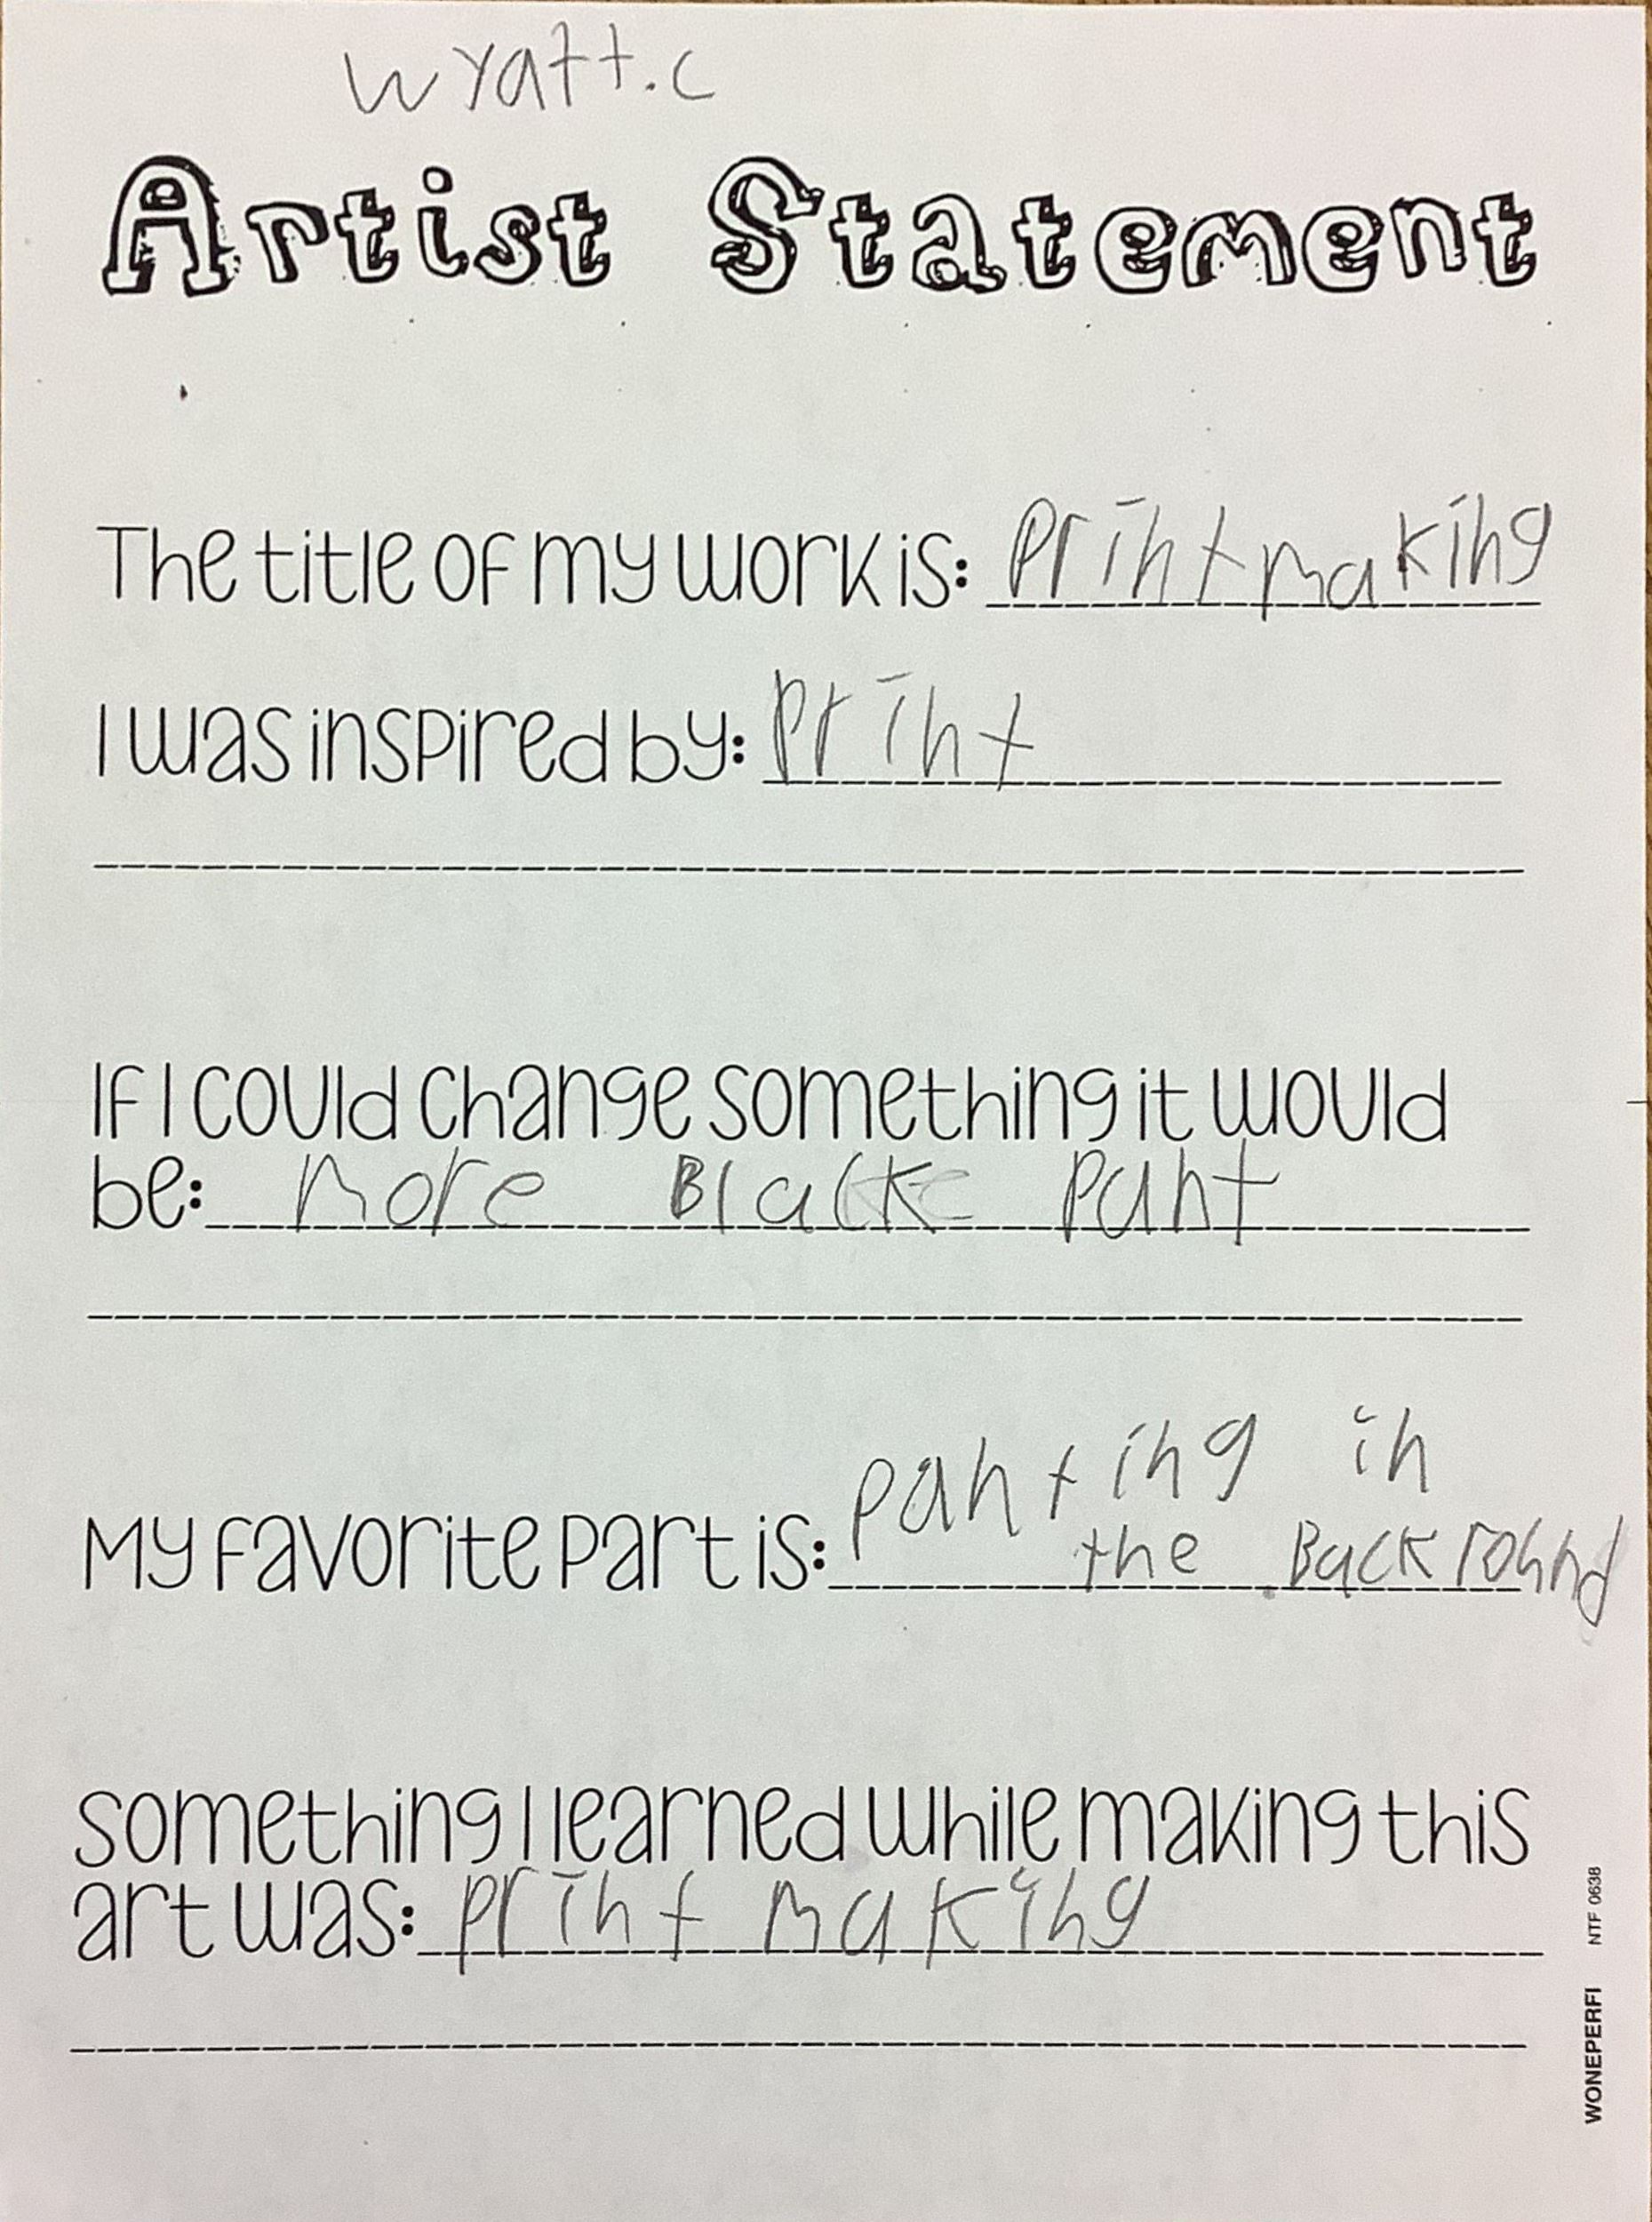 Wyatt.c
Artist Statement
The title of my work is: Printmaking
I was inspired by: Print
If I could change something it would
be: more Black pant
panting in
My favorite part is: the Backround
Something I learned while making this
art was: print making
WONEPERFI NTF 0638